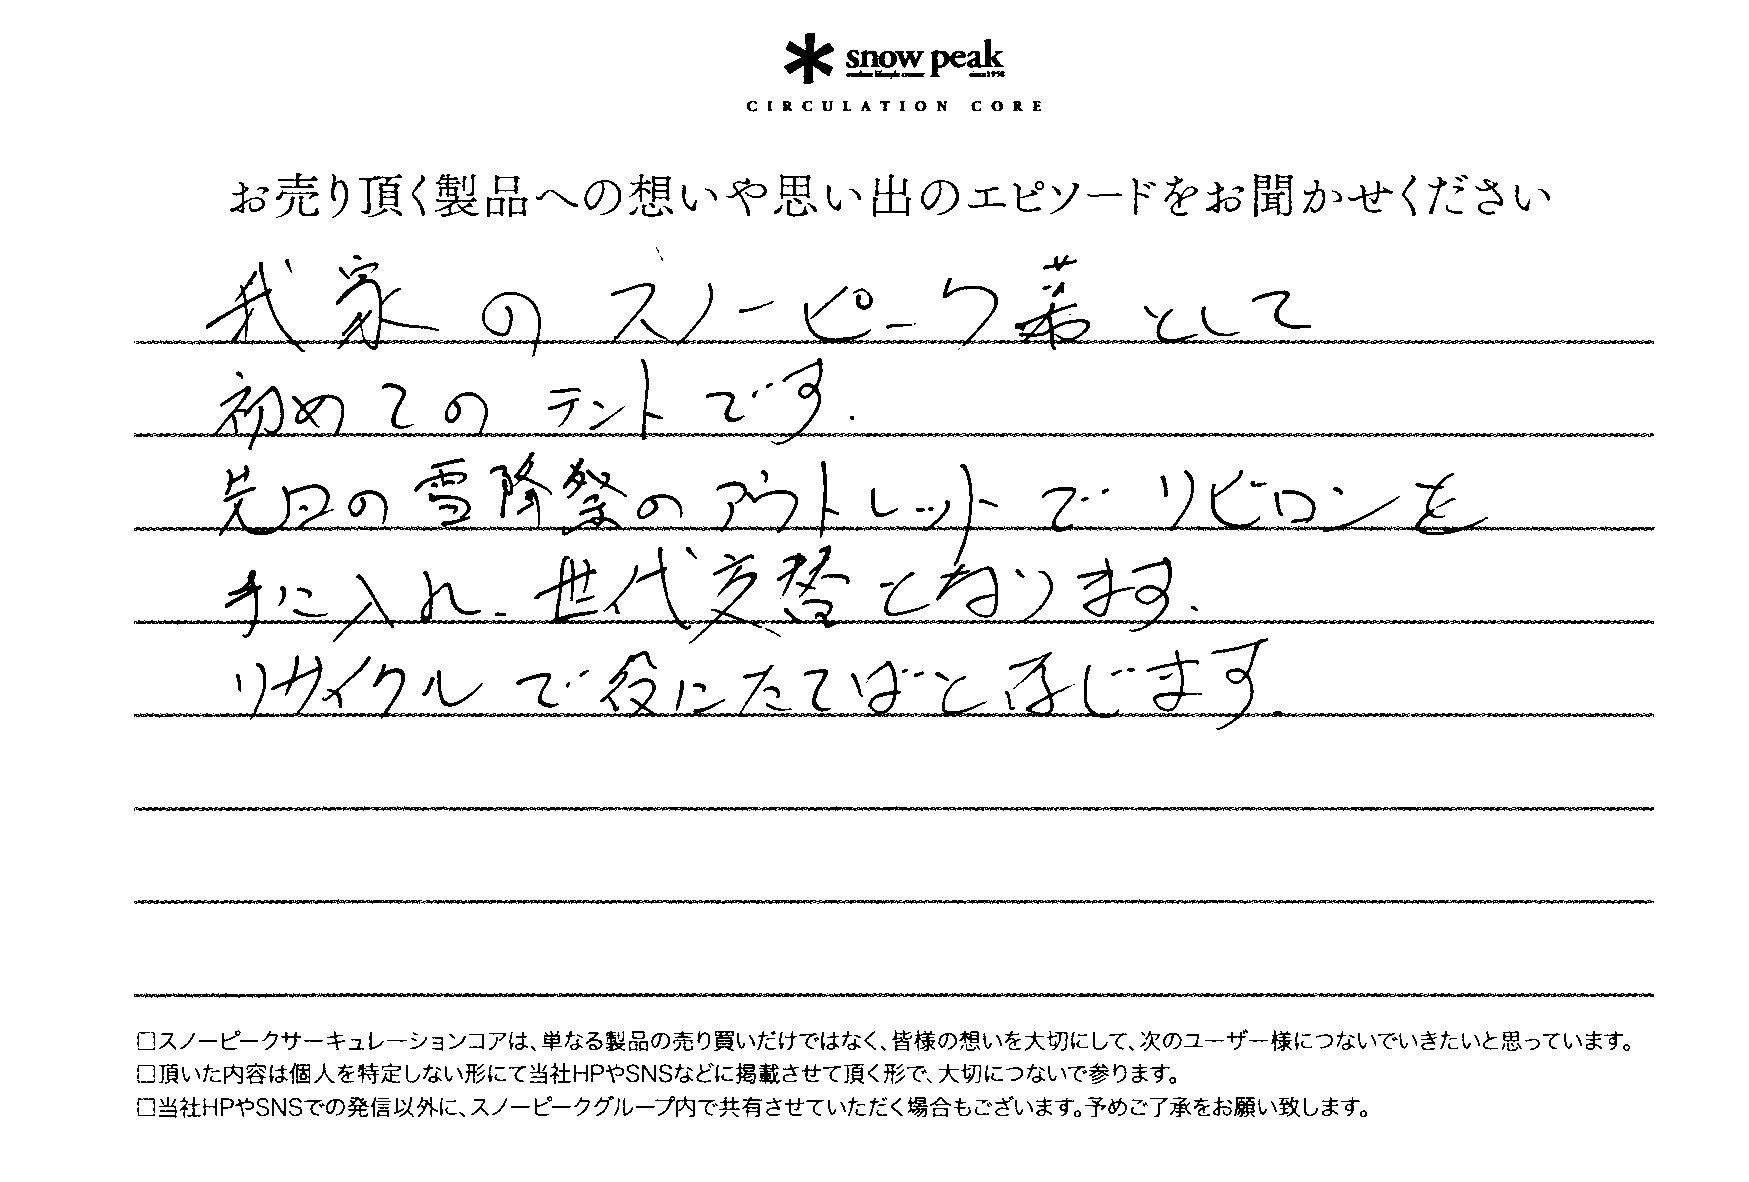 snow peak
CIRCULATION CORE
お売り頂く製品への想いや思い出のエピソードをお聞かせください
我家のスノーピーク幕として
初めてのテントです.
先日の雪降祭のアウトレットでリビロンを
手に入れ、世代交替となります.
リサイクルで役にたてばと存じます.
□スノーピークサーキュレーションコアは、単なる製品の売り買いだけではなく、皆様の想いを大切にして、次のユーザー様につないでいきたいと思っています。
□頂いた内容は個人を特定しない形にて当社HPやSNSなどに掲載させて頂く形で、大切につないで参ります。
□当社HPやSNSでの発信以外に、スノーピークグループ内で共有させていただく場合もございます。予めご了承をお願い致します。